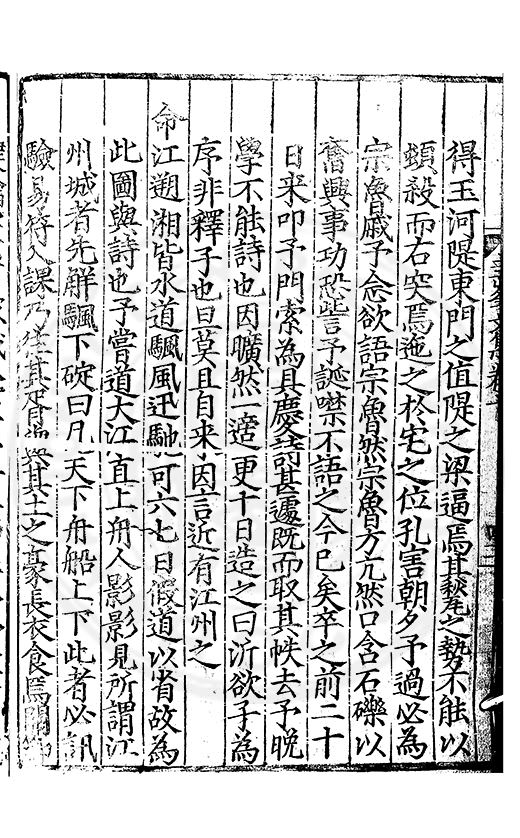 得玉河隄東門之值隄之梁逼焉其甃之勢不能以
頓殺而右突焉迤之於宅之位孔害朝夕予過必為
宗魯戚予念欲語宗魯然宗魯方亢然口含石礫以
奮興事功恐訾予誕噤不語之今已矣卒之前二十
日来叩予門索為具慶詩甚遽既而取其帙去予晚
學不能詩也因曠然一
更十日造之曰沂欲子為
序非釋子也曰莫且自来因言近有江州之
命江遡湘皆水道颿風迅馳可六七日假道以省故為
此圖與詩也予嘗道大江直上舟人影影見所謂江
州城者先解颿下碇曰凡天下舟船上下此者必訊
驗易符入課乃
其土之豪長衣食焉